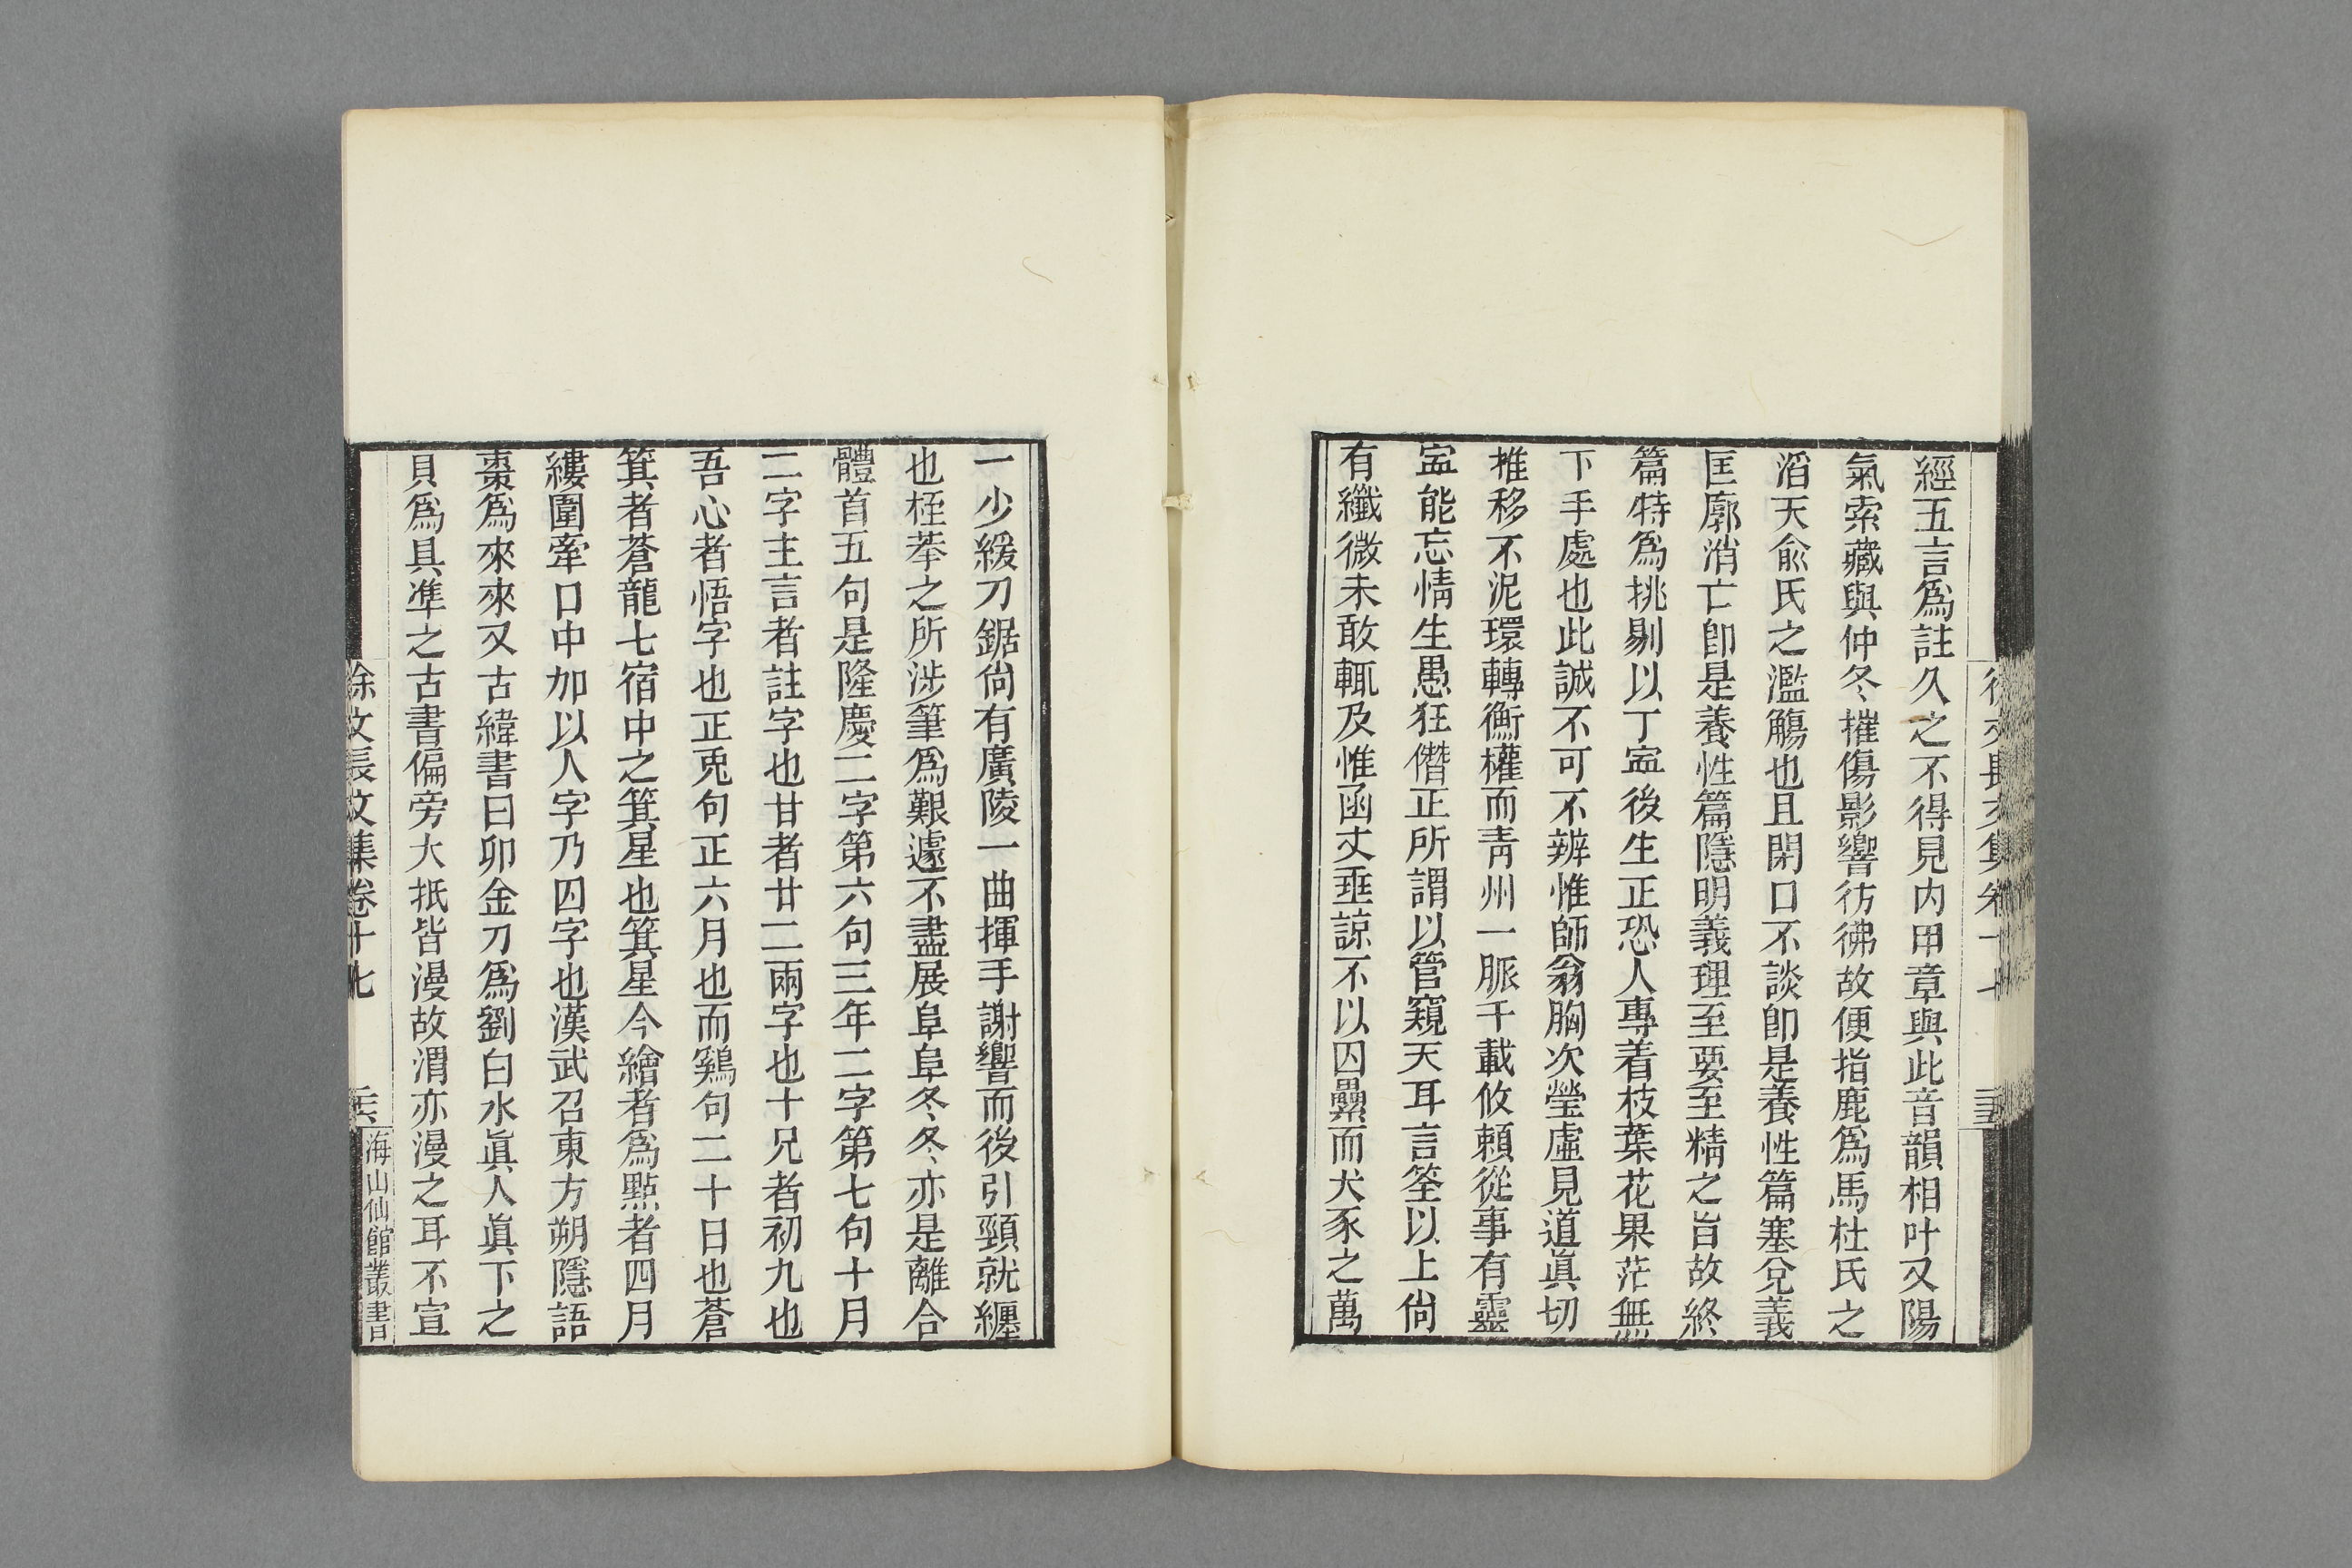 經五言爲註久之不得見内甲章與此音韻相叶又陽
氣索藏與仲冬摧傷影響彷彿故便指鹿爲馬杜氏之
滔天俞氏之濫觴也且閉口不談卽是養性篇塞兌義
匡廓消亡卽是養性篇隱明義理至要至精之旨故終
篇特爲挑剔以丁寍後生正恐人專着枝葉花果茫無
下手處也此誠不可不辨惟師翁胸次瑩虛見道眞切
推移不泥環轉衡權而靑州一脈千載攸頼從事有靈
寍能忘情生愚狂僭正所謂以管窺天耳言筌以上尙
有纖微未敢輒及惟函丈垂諒不以囚纍而犬豕之萬
徐文長文集卷十七
一少緩刀鋸尙有廣陵一曲揮手謝響而後引頸就纏
也桎拲之所涉筆爲艱遽不盡展阜阜冬冬亦是離合
體首五句是隆慶二字第六句三年二字第七句十月
二字主言者註字也甘者廿二兩字也十兄者初九也
吾心者悟字也正兎句正六月也而鷄句二十日也蒼
箕者蒼龍七宿中之箕星也箕星今繪者爲點者四月
縷圍牽口中加以人字乃囚字也漢武召東方朔隱語
棗爲來來又古緯書曰卯金刀爲劉白水眞人眞下之
貝爲具準之古書偏旁大抵皆漫故渭亦漫之耳不宣
徐文長文集卷十七
海山仙館叢書